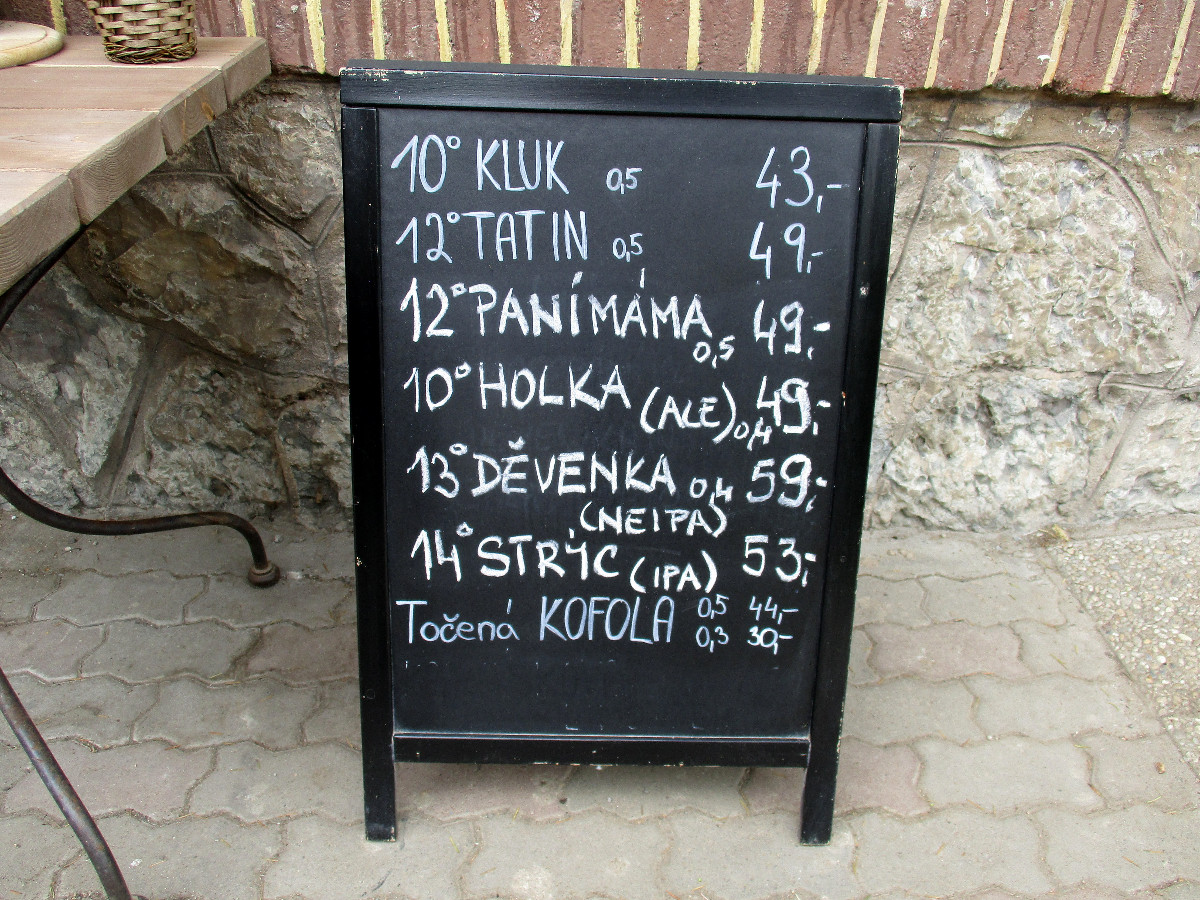 10° KLUK 0,5 43,-
12° TATIN 0,5 49,-
12° PANÍMÁMA 0,5 49,-
10° HOLKA (ALE) 0,4 49,-
13° DĚVENKA 0,4 59,-
(NEIPA)
14° STRÝC (IPA) 53,-
Točená KOFOLA 0,5 44,-
0,3 30,-